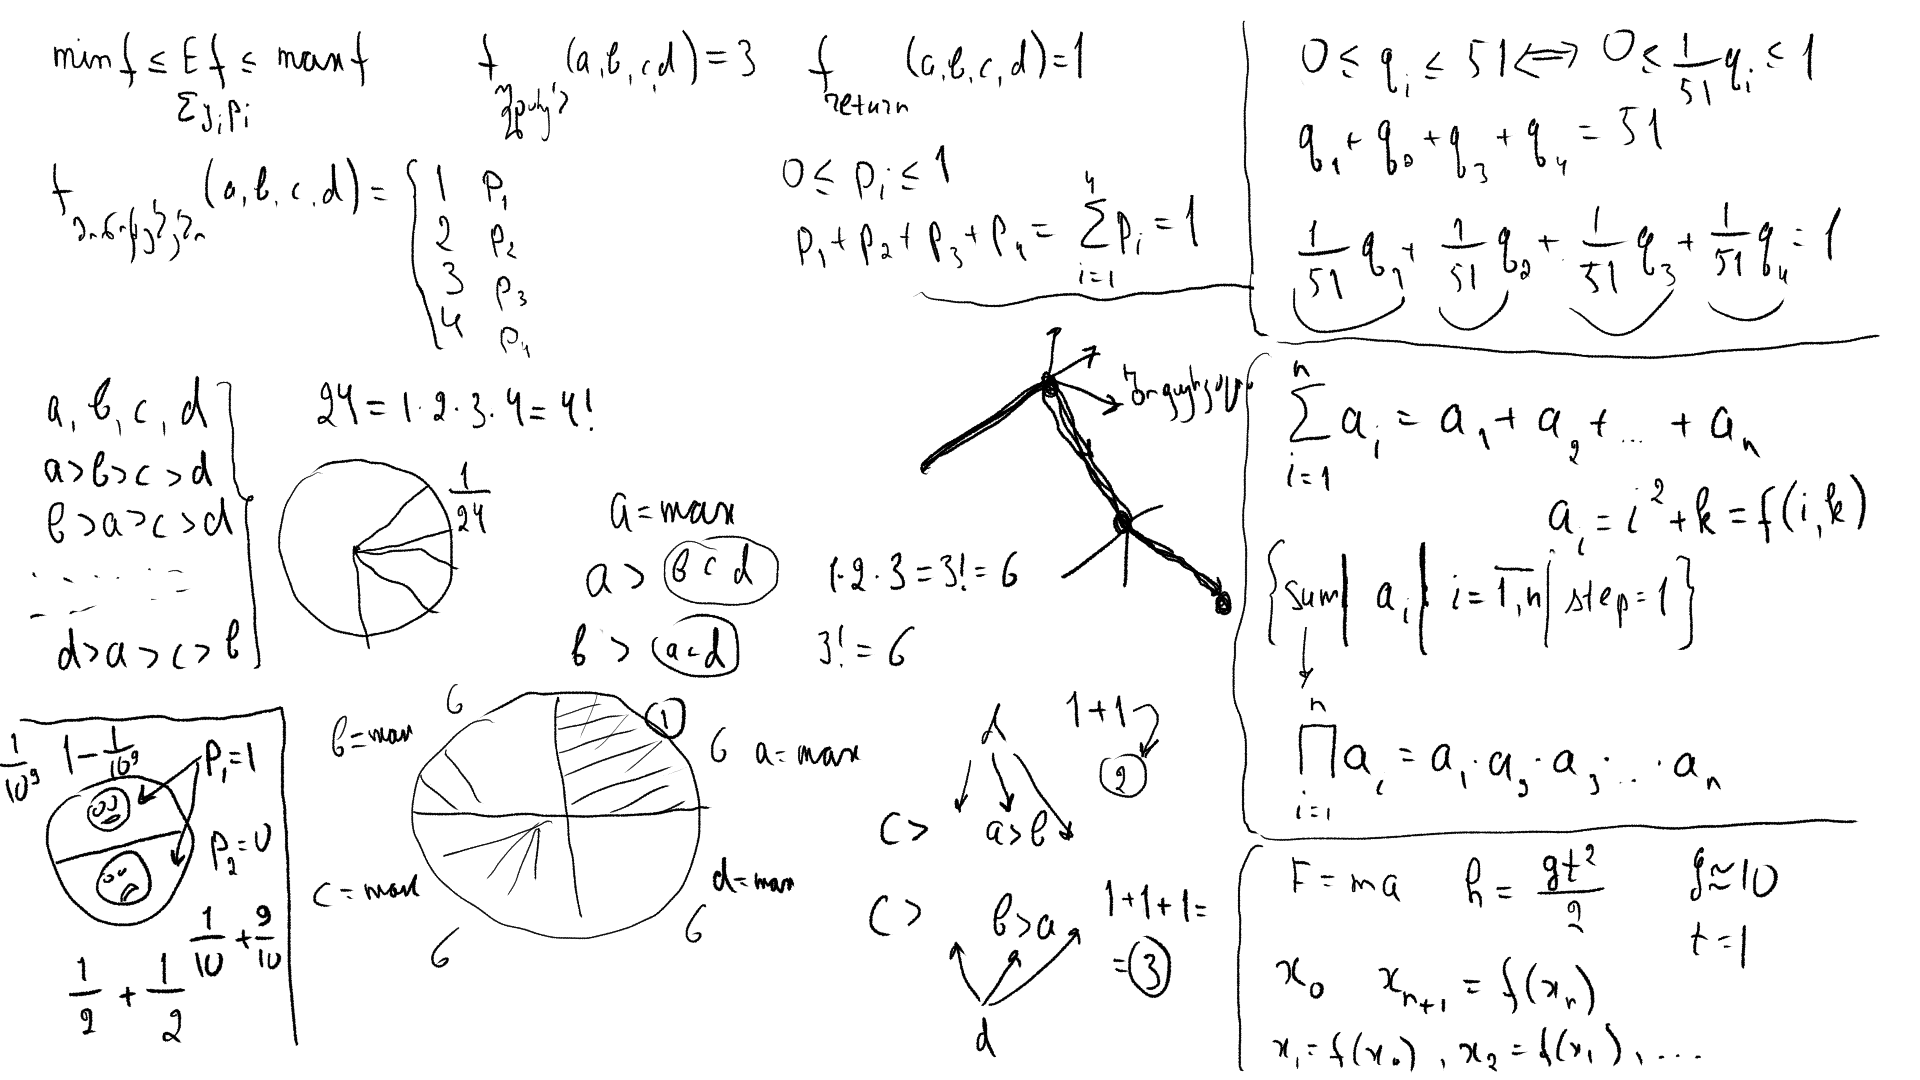 min f ≤ E f ≤ max f
Σ y_i p_i
f (a, b, c, d) = 3
f_return (a, b, c, d) = 1
f (a, b, c, d) = {
1 p_1
2 p_2
3 p_3
4 p_4
0 ≤ p_i ≤ 1
p_1 + p_2 + p_3 + p_4 = Σ_{i=1}^{4} p_i = 1
0 ≤ q_i ≤ 51 ⟺ 0 ≤ 1/51 q_i ≤ 1
q_1 + q_2 + q_3 + q_4 = 51
1/51 q_1 + 1/51 q_2 + 1/51 q_3 + 1/51 q_4 = 1
a, b, c, d
a > b > c > d
b > a > c > d
. . . . . .
d > a > c > b
24 = 1 · 2 · 3 · 4 = 4!
1/24
a = max
a > b c d
1 · 2 · 3 = 3! = 6
b > a c d
3! = 6
Σ_{i=1}^{n} a_i = a_1 + a_2 + ... + a_n
a_i = i^2 + k = f(i, k)
{sum | a_i | i = 1,n | step = 1}
n
∏_{i=1}^{n} a_i = a_1 · a_2 · a_3 · ... · a_n
1/10^9
1 − 1/10^9
p_1 = 1
p_2 = 0
1/10 + 9/10
1/2 + 1/2
b = max
6
1
6
a = max
c = max
6
d = max
6
d
1 + 1
2
c > a > b
c > b > a
1 + 1 + 1 =
= 3
d
F = ma
h = gt^2/2
g ≈ 10
t = 1
x_0
x_{n+1} = f(x_n)
x_1 = f(x_0), x_2 = f(x_1), ...